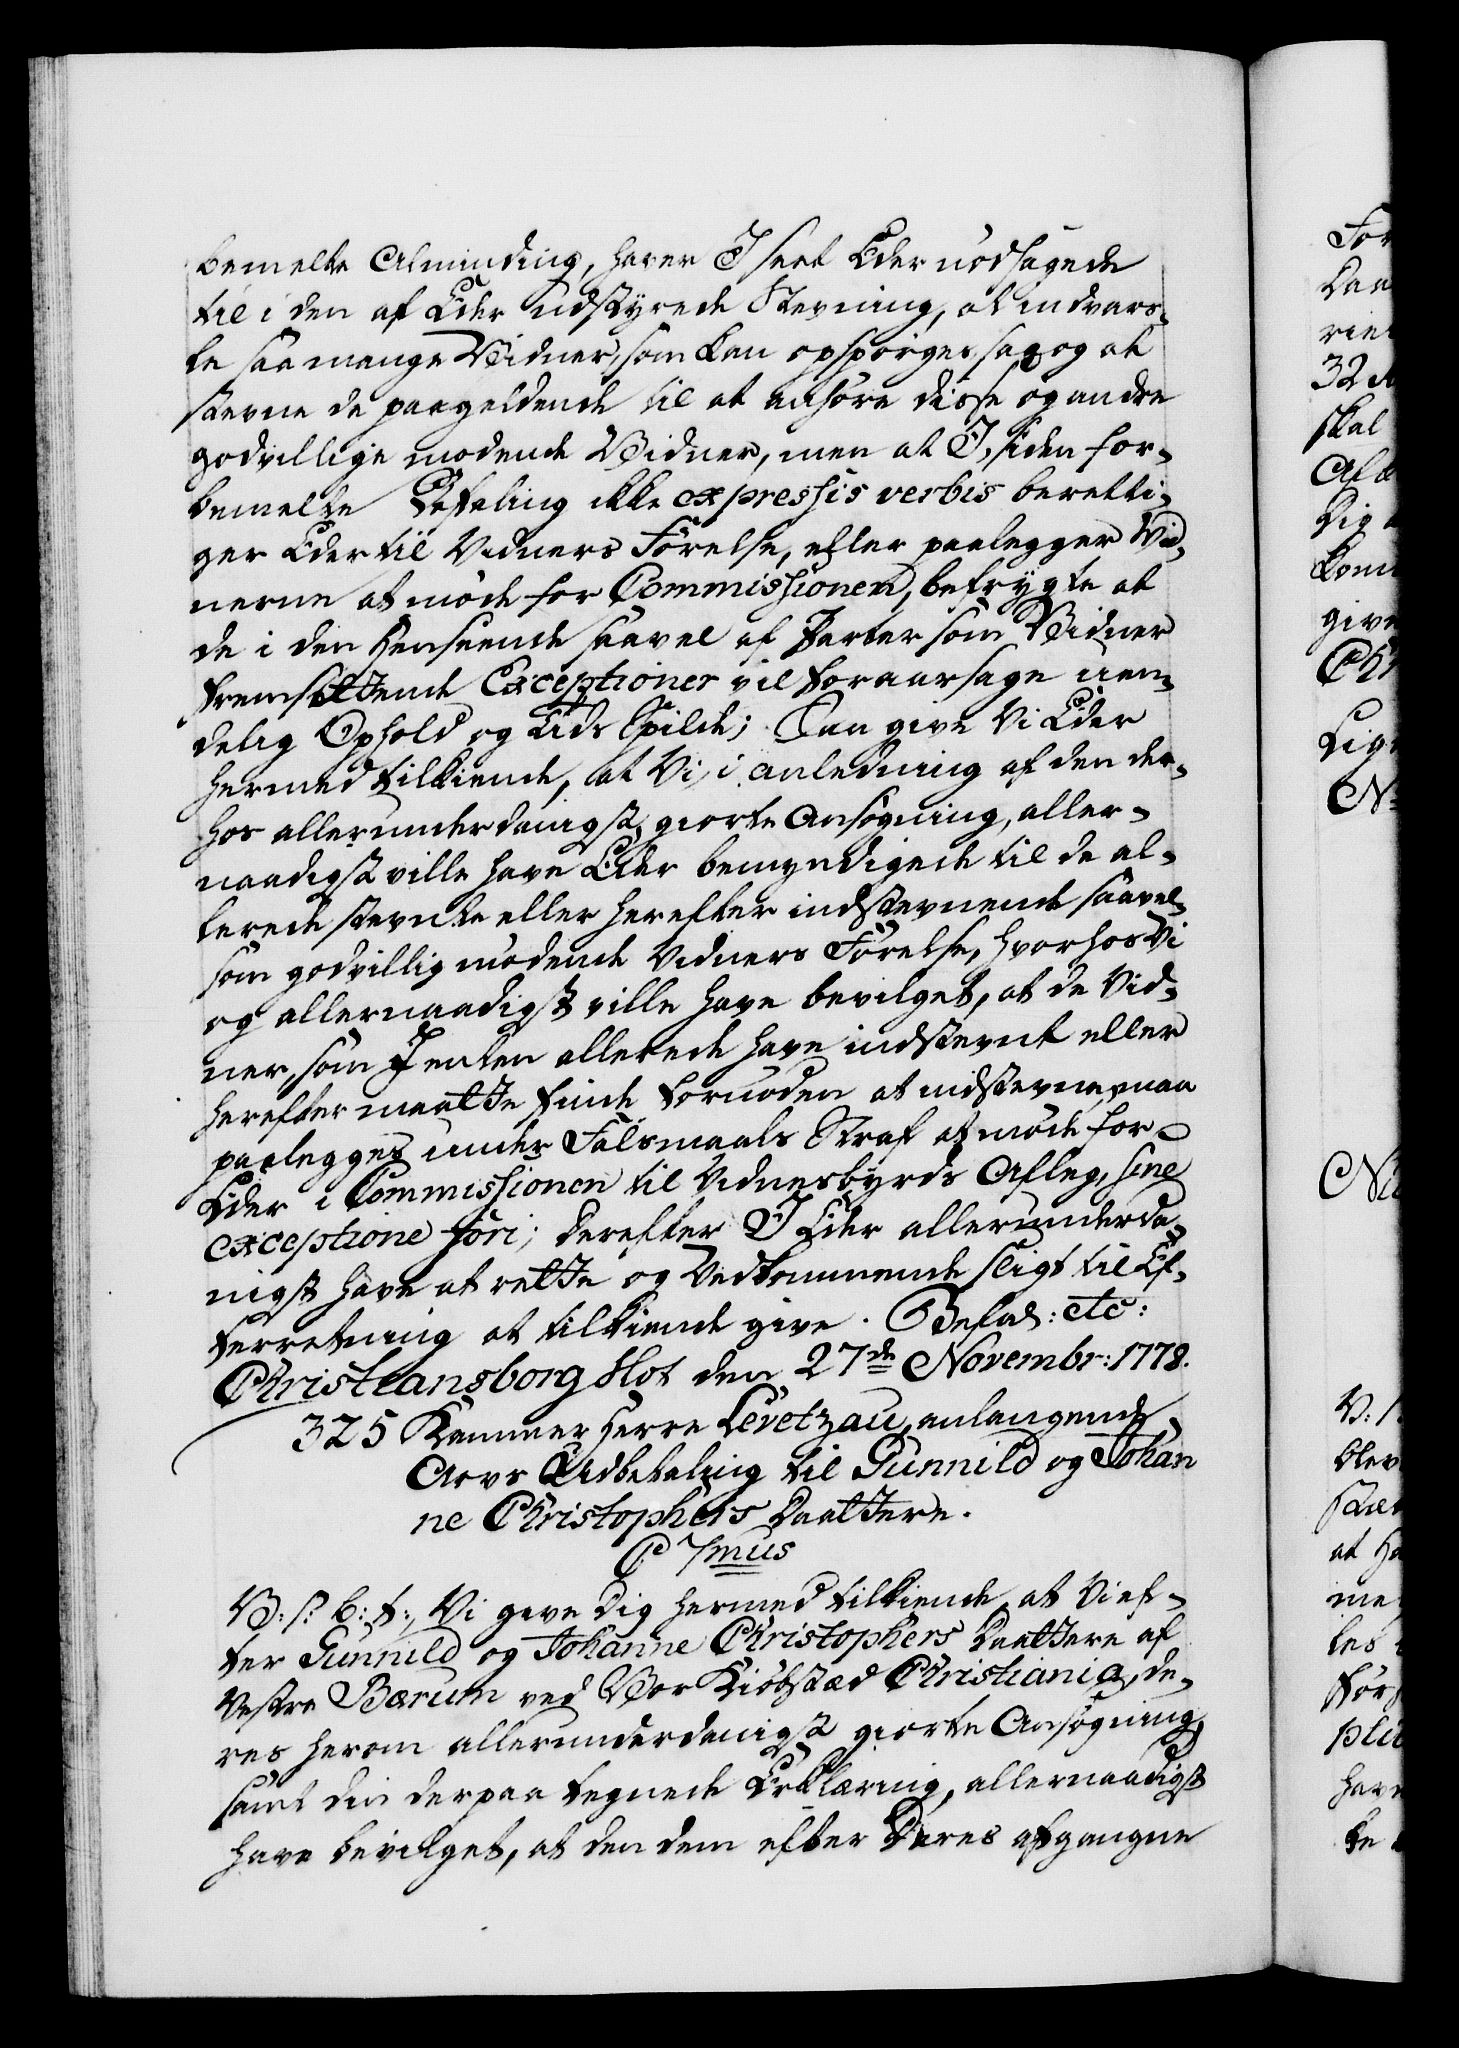 bemelte Alminding, haver I seet Eder nödsagede
til i den af Eder udstyrede Stevning, at indvars-
le saa mange Vidner, som kan opspørges, sag og at
stevne de paagieldende til at anhøre disse og andre
godvillige mødende Vidner, men at I, siden for-
bemelte Befaling ikke expressis verbis beretti-
ger Eder til Vidners Førelse, eller paalegger Vid-
nerne at møde for Commissionen, befrygte at
de i den Henseende saavel af Parter som Vidner
fremsettende Exceptioner vil foraarsage uen-
delig Ophold og Tids Spilde; Saa give Vi Eder
hermed tilkiende, at Vi, i anledning af den der-
hos allerunderdanigst giorte Ansøgning, aller-
naadigst ville have Eder bemyndigede til de al-
lerede stevnte eller herefter indstevnende saavel
som godvillig mødende Vidners Førelse, hvorhos Vi
og allernaadigst ville have bevilget, at de Vid-
ner, som I enten allerede have indstevnt eller
herefter maatte finde fornøden at indstevne, maa
paalegges under Falsmaals Straf at møde for
Eder i Commissionen til Vidnesbyrds Afleg, sine
exceptione fori; derefter I Eder allerunderda-
nigst have at rette og Vedkommende sligt til Ef-
terretning at tilkiende give. Befal: etc:
Christiansborg Slot den 27de Novembr: 1778.
325 Kammer Herre Levetzau, anlangende
Arvs Udbetaling til Gunnild og Johan
ne Christophers Daattere.
C 7mus
V: s: b: t:, Vi give dig hermed tilkiende, at Vi ef-
ter Gunnild og Johanne Christophers Daattere af
Vestre Bærum ved Vor Kiøbstæd Christiania, de-
res herom allerunderdanigst giorte Ansøgning,
samt din derpaa tegnede Erklæring, allernaadigst
have bevilget, at den dem efter Deres afgangne